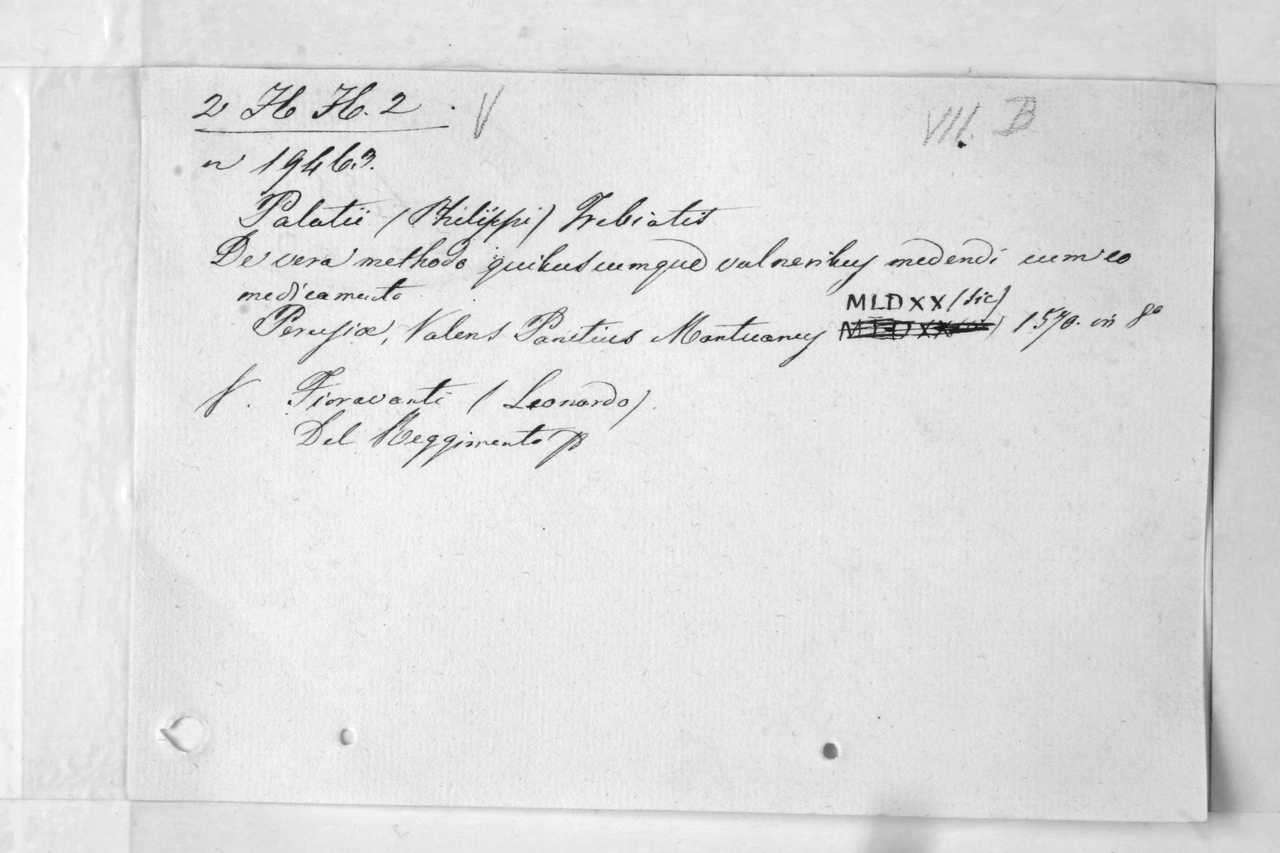 2 H H. 2 . V VII. B
n 19463.
Palatii (Philippi) Trebiatis
De vera methodo quibuscumque vulneribus medendi cum eo
medicamento
MLDXX (sic)
Perusiæ, Valens Panitius Mantuanus 1570. in 8o
V. Fioravanti (Leonardo).
Del Reggimento